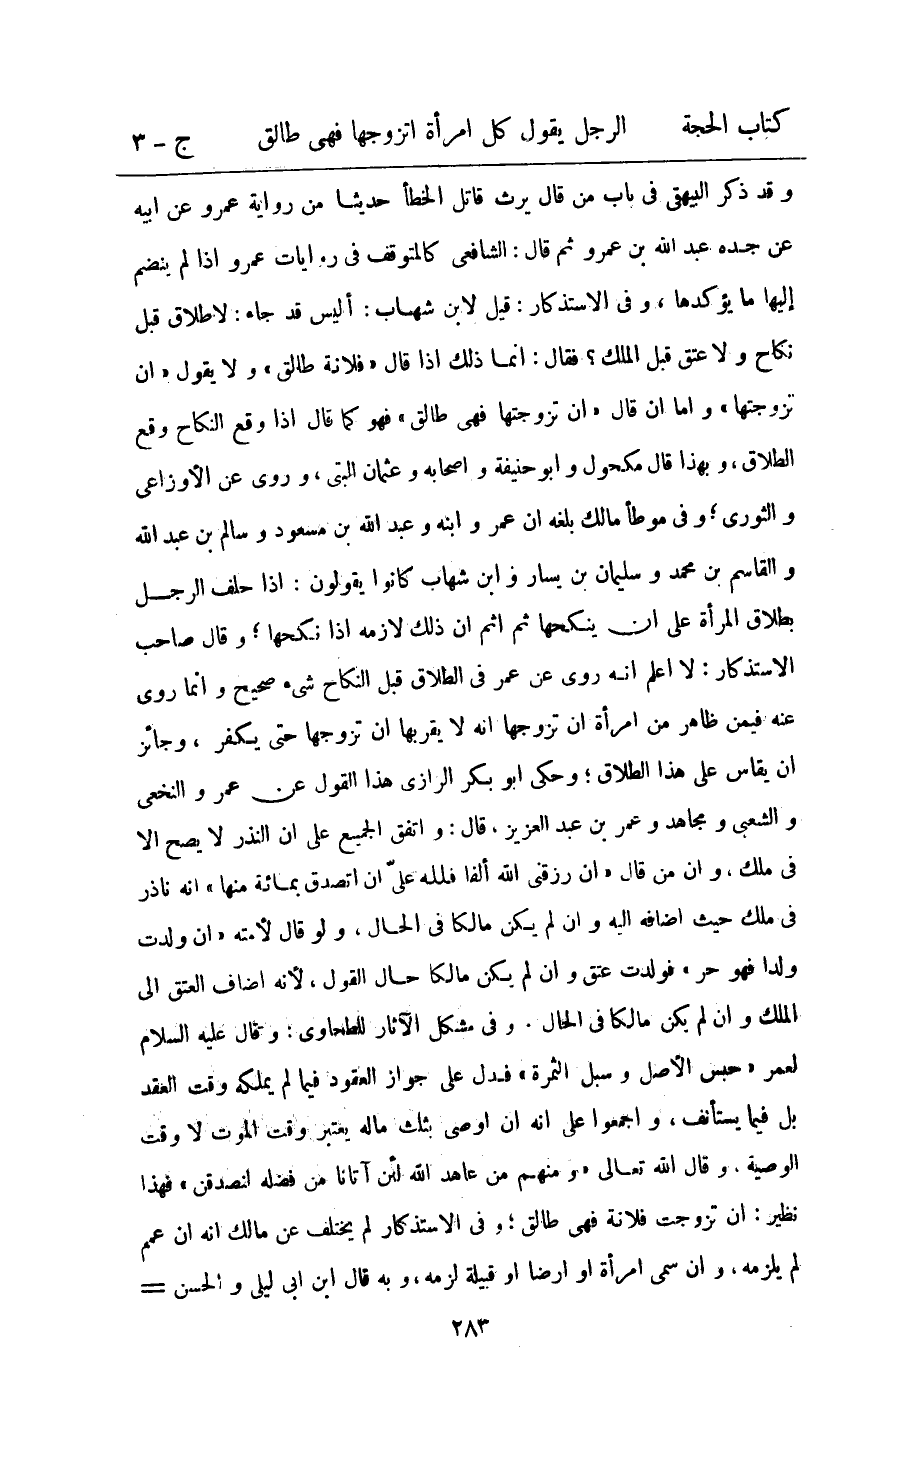 كتاب الحجة الرجل يقول كل امرأة اتزوجها فهى طالق ج - ٣
و قد ذكر البيهقى فى باب من قال يرث قاتل الخطأ حديثا من رواية عمرو عن ابيه
عن جده عبد الله بن عمرو ثم قال : الشافعى كالمتوقف فى روايات عمرو اذا لم ينضم
إليها ما يؤكدها ، و فى الاستذكار : قيل لابن شهاب : أليس قد جاء : لا طلاق قبل
نكاح و لا عتق قبل الملك ؟ فقال : انما ذلك اذا قال « فلانة طالق » و لا يقول « ان
تزوجتها » و اما ان قال « ان تزوجتها فهى طالق » فهو كما قال اذا وقع النكاح وقع
الطلاق ، و بهذا قال مكحول و ابو حنيفة و اصحابه و عثمان البتى ، و روى عن الأوزاعى
و الثورى ؛ و فى موطأ مالك بلغه ان عمر و ابنه و عبد الله بن مسعود و سالم بن عبد الله
و القاسم بن محمد و سليمان بن يسار و ابن شهاب كانوا يقولون : اذا حلف الرجل
بطلاق المرأة على ان ينكحها ثم اثم ان ذلك لازمه اذا نكحها ؛ و قال صاحب
الاستذكار : لا اعلم انه روى عن عمر فى الطلاق قبل النكاح شىء صحيح و انما روى
عنه فيمن ظاهر من امرأة ان تزوجها انه لا يقربها ان تزوجها حتى يكفر ، وجائز
ان يقاس على هذا الطلاق ؛ وحكى ابو بكر الرازى هذا القول عن عمر و النخعى
و الشعبى و مجاهد و عمر بن عبد العزيز ، قال : و اتفق الجميع على ان النذر لا يصح الا
فى ملك ، و ان من قال « ان رزقنى الله ألفا فلله علىّ ان اتصدق بمائة منها » انه ناذر
فى ملك حيث اضافه اليه و ان لم يكن مالكا فى الحال ، و لو قال لأمته « ان ولدت
ولدا فهو حر » فولدت عتق و ان لم يكن مالكا حال القول ، لأنه اضاف العتق الى
الملك و ان لم يكن مالكا فى الحال . و فى مشكل الآثار للطحاوى : و قال عليه السلام
لعمر « حبس الأصل و سبل الثمرة » فدل على جواز العقود فيما لم يملكه وقت العقد
بل فيما يستأنف ، و اجمعوا على انه ان اوصى بثلث ماله يعتبر وقت الموت لا وقت
الوصية ، و قال الله تعالى « و منهم من عاهد الله لئن آتانا من فضله لنصدقن » فهذا
نظير : ان تزوجت فلانة فهى طالق ؛ و فى الاستذكار لم يختلف عن مالك انه ان عمم
لم يلزمه ، و ان سمى امرأة او ارضا او قبيلة لزمه ، و به قال ابن ابى ليلى و الحسن =
٢٨٣